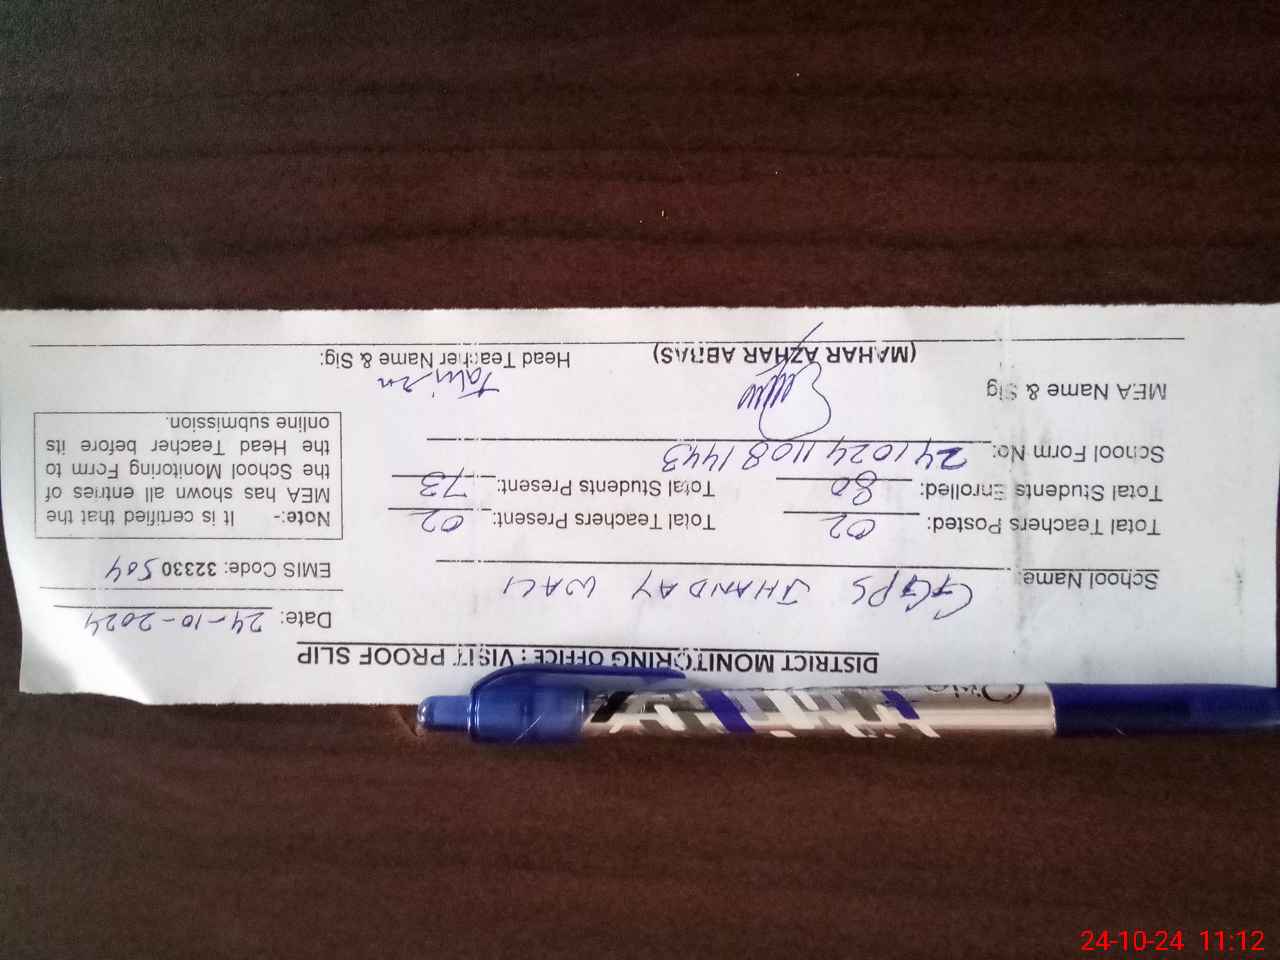 DISTRICT MONITORING OFFICE : VISIT PROOF SLIP
Date: 24-10-2024
School Name: GGPS JHANDAY WALI
EMIS Code: 32330 504
Total Teachers Posted: 02 Total Teachers Present: 02
Total Students Enrolled: 80 Total Students Present: 73
School Form No: 24102411081443
Note:- It is certified that the
MEA has shown all entries of
the School Monitoring Form to
the Head Teacher before its
online submission.
MEA Name & Sig
(MAHAR AZHAR ABBAS)
Head Teacher Name & Sig:
24-10-24 11:12